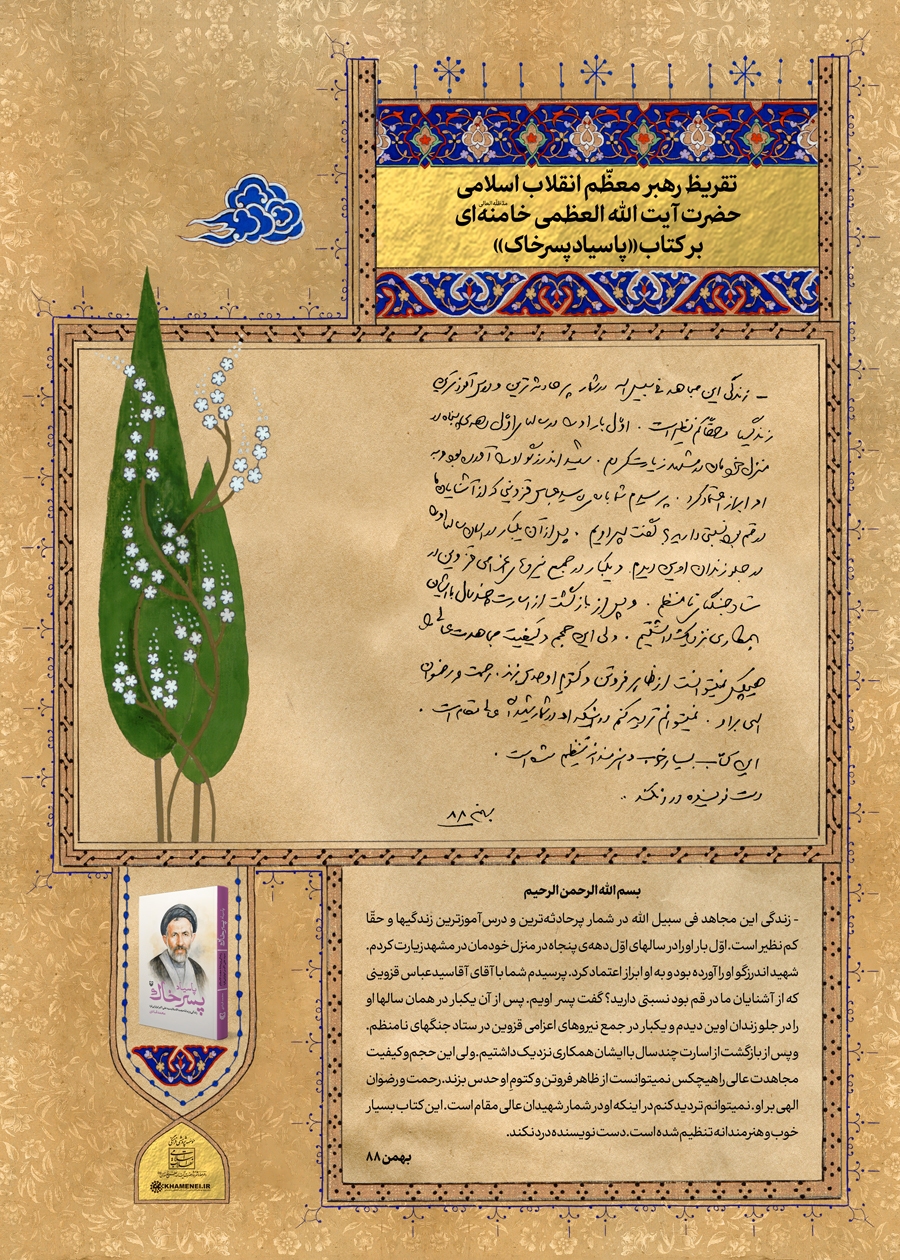 تقریظ رهبر معظّم انقلاب اسلامی
حضرت آیت الله العظمی خامنه‌ای مدّظلّه‌العالی
بر کتاب «پاسیاد پسر خاک»
ـ زندگی این مجاهد فی سبیل الله در شمار پرحادثه‌ترین و درس‌آموزترین
زندگیها و حقّاً کم نظیر است. اوّل بار او را در سالهای اوّل دهه‌ی پنجاه در
منزل خودمان در مشهد زیارت کردم. شهید اندرزگو او را آورده بود و به
او ابراز اعتماد کرد. پرسیدم شما با آقای آسیدعباس قزوینی که از آشنایان ما
در قم بود نسبتی دارید؟ گفت پسر اویم. پس از آن یکبار در همان سالها او را
در جلو زندان اوین دیدم و یکبار در جمع نیروهای اعزامی قزوین در
ستاد جنگهای نامنظم. و پس از بازگشت از اسارت چند سال با ایشان
همکاری نزدیک داشتیم. ولی این حجم و کیفیت مجاهدت عالی را
هیچکس نمیتوانست از ظاهر فروتن و کتوم او حدس بزند. رحمت و رضوان
الهی بر او. نمیتوانم تردید کنم در اینکه او در شمار شهیدان عالی مقام است.
این کتاب بسیار خوب و هنرمندانه تنظیم شده است.
دست نویسنده درد نکند.
بهمن ۸۸
بسم الله الرحمن الرحیم
- زندگی این مجاهد فی سبیل الله در شمار پرحادثه‌ترین و درس‌آموزترین زندگیها و حقّا
کم نظیر است. اوّل بار او را در سالهای اوّل دهه‌ی پنجاه در منزل خودمان در مشهد زیارت کردم.
شهید اندرزگو او را آورده بود و به او ابراز اعتماد کرد. پرسیدم شما با آقای آقاسیدعباس قزوینی
که از آشنایان ما در قم بود نسبتی دارید؟ گفت پسر اویم. پس از آن یکبار در همان سالها او
را در جلو زندان اوین دیدم و یکبار در جمع نیروهای اعزامی قزوین در ستاد جنگهای نامنظم.
و پس از بازگشت از اسارت چند سال با ایشان همکاری نزدیک داشتیم. ولی این حجم و کیفیت
مجاهدت عالی را هیچکس نمیتوانست از ظاهر فروتن و کتوم او حدس بزند. رحمت و رضوان
الهی بر او. نمیتوانم تردید کنم در اینکه او در شمار شهیدان عالی مقام است. این کتاب بسیار
خوب و هنرمندانه تنظیم شده است. دست نویسنده درد نکند.
بهمن ۸۸
پاسیاد
پسر خاک
KHAMENEI.IR